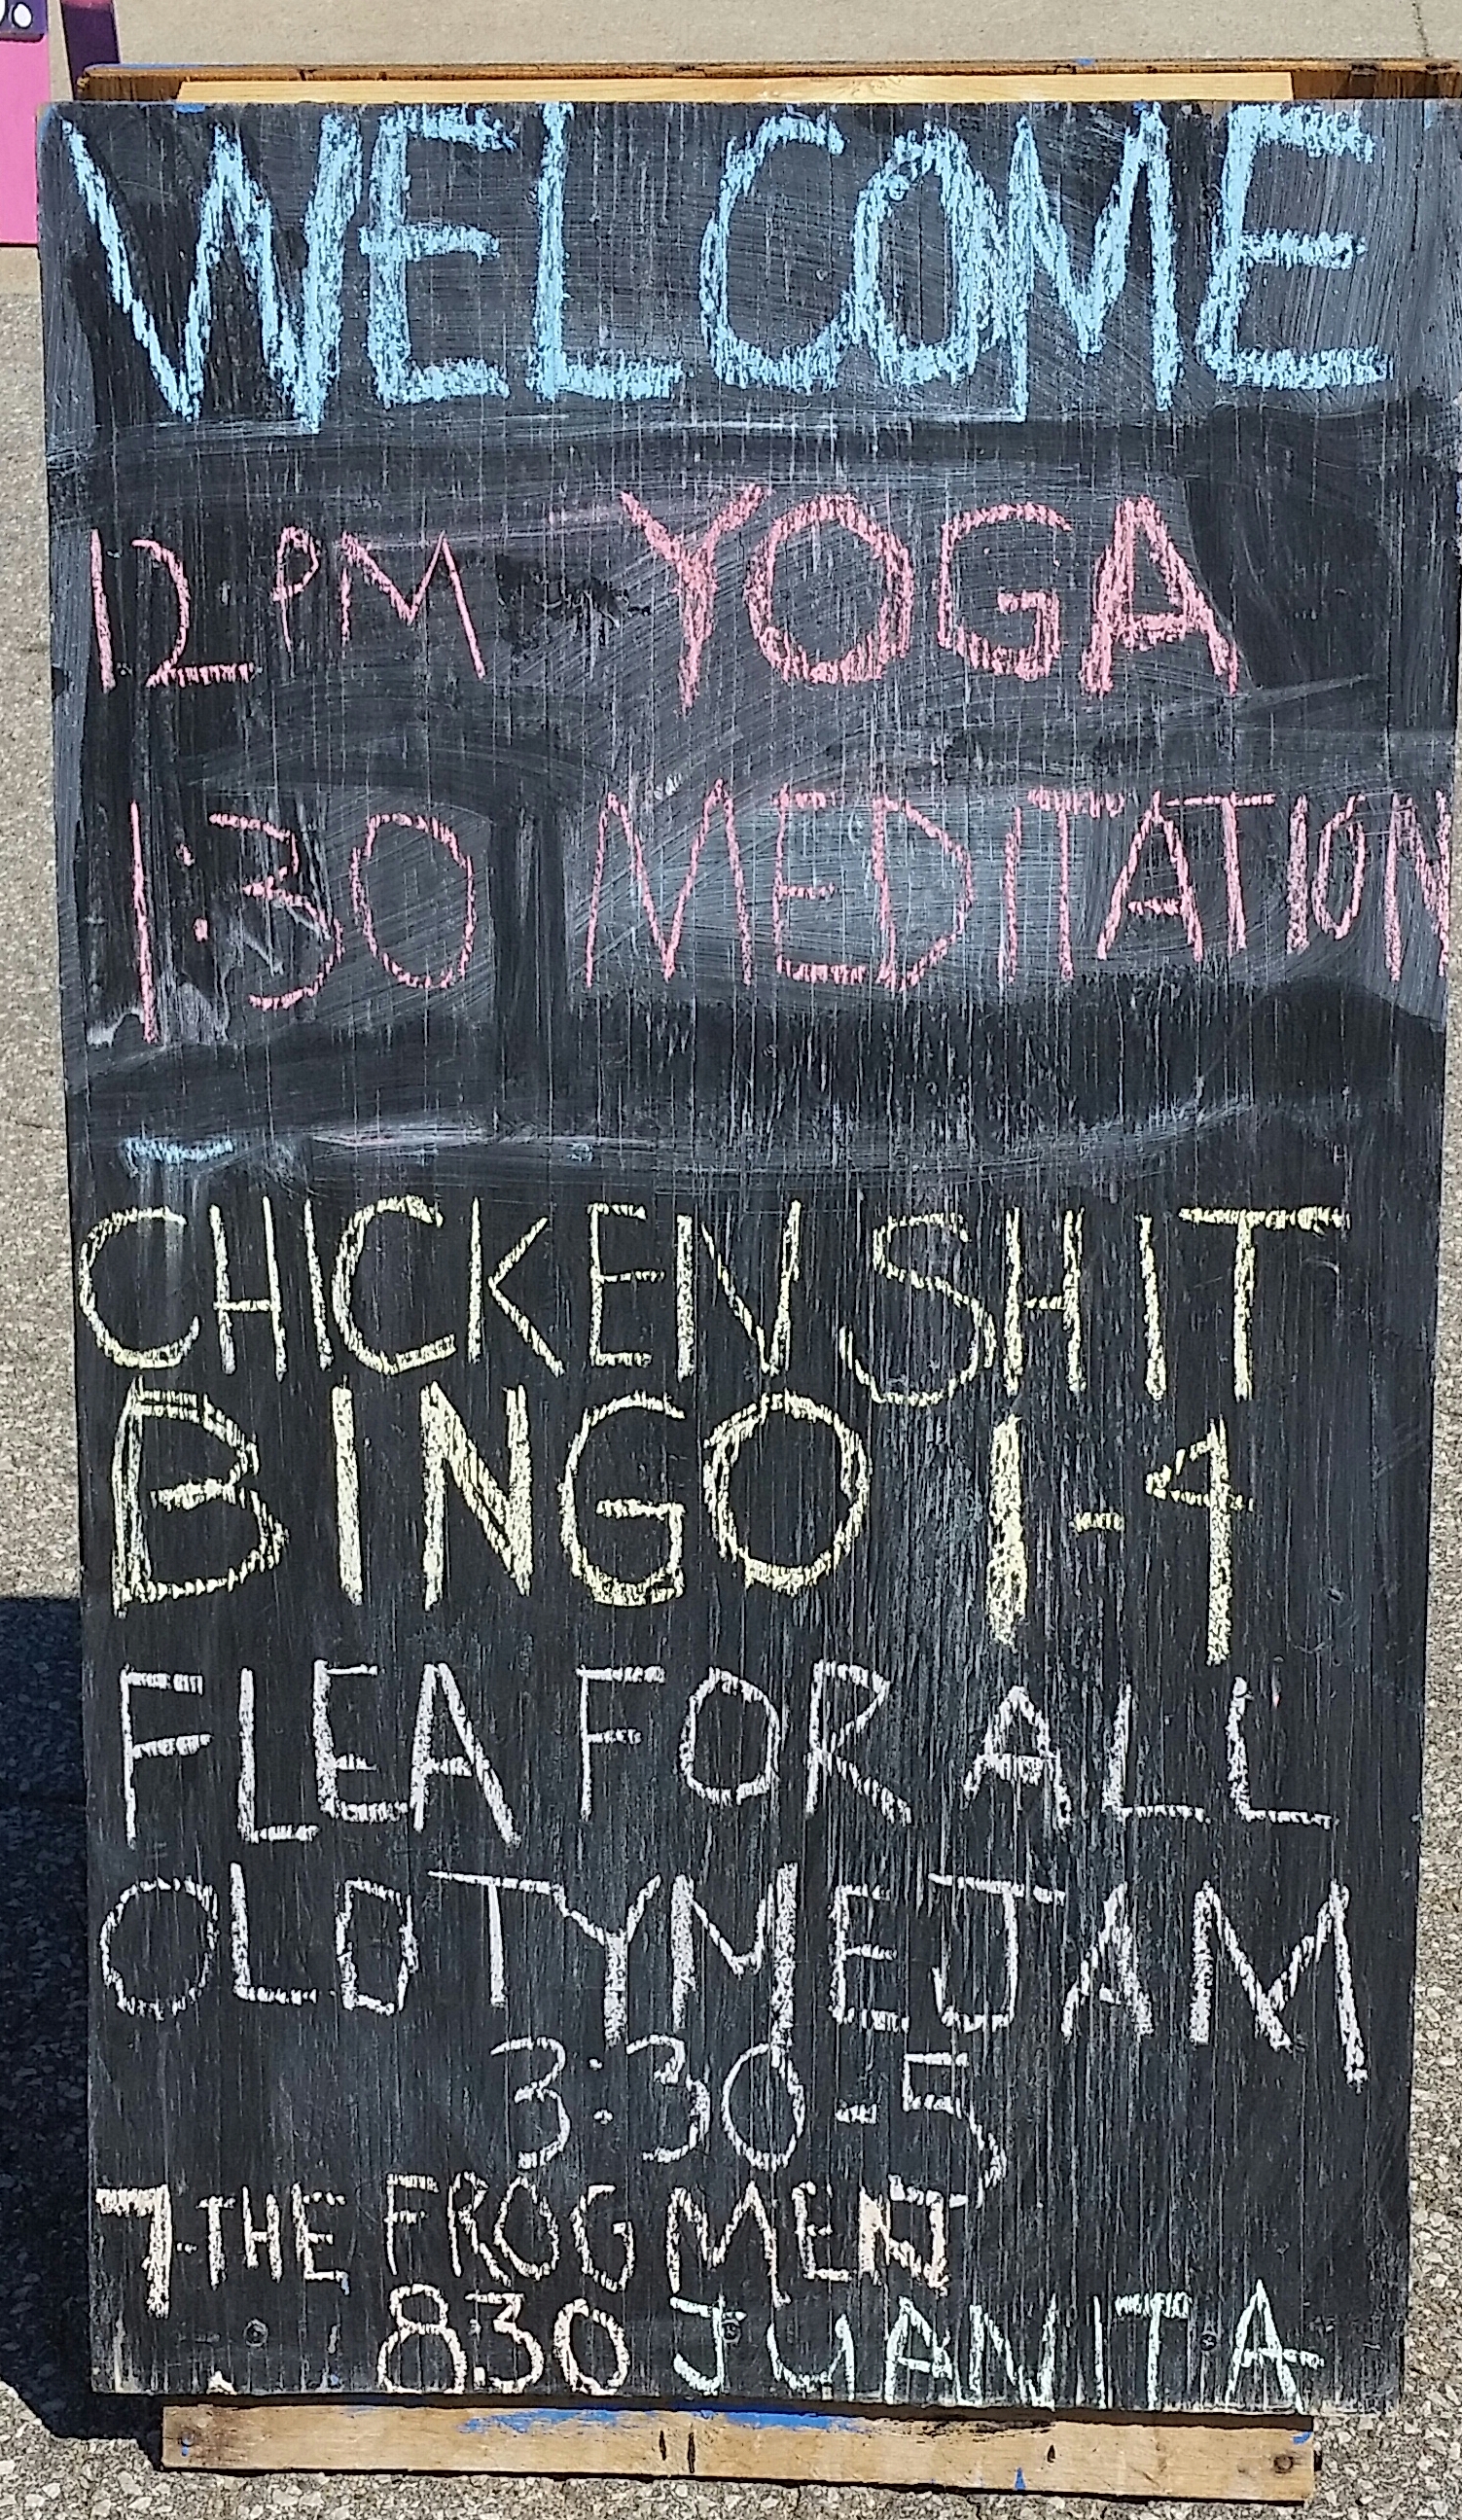 WELCOME
12 PM YOGA
1:30 MEDITATION
CHICKEN SHIT
BINGO 1-4
FLEA FOR ALL
OLD TYME JAM
3:30-5
7-THE FROG MEN
830 JUANITA